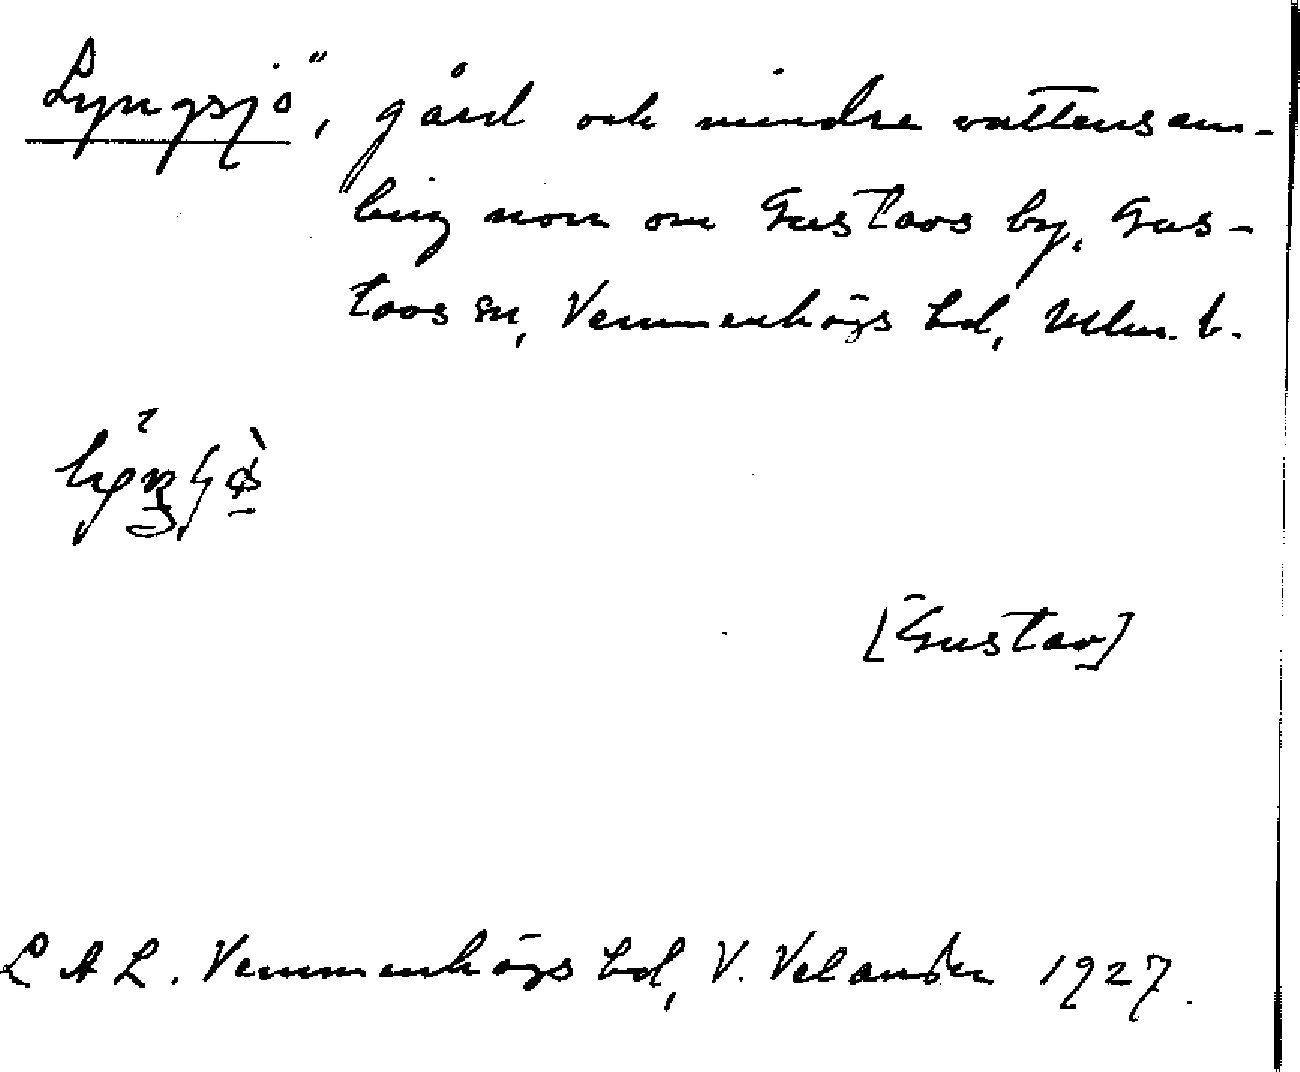 Lyngsjö, gård och mindre vattensam-
ling norr om Gustavs by, Gus-
tavs sn, Vemmenhögs hd, Mlm. l.
[Gustav]
L A L. Vemmenhögs hd, V. Velander 1927.